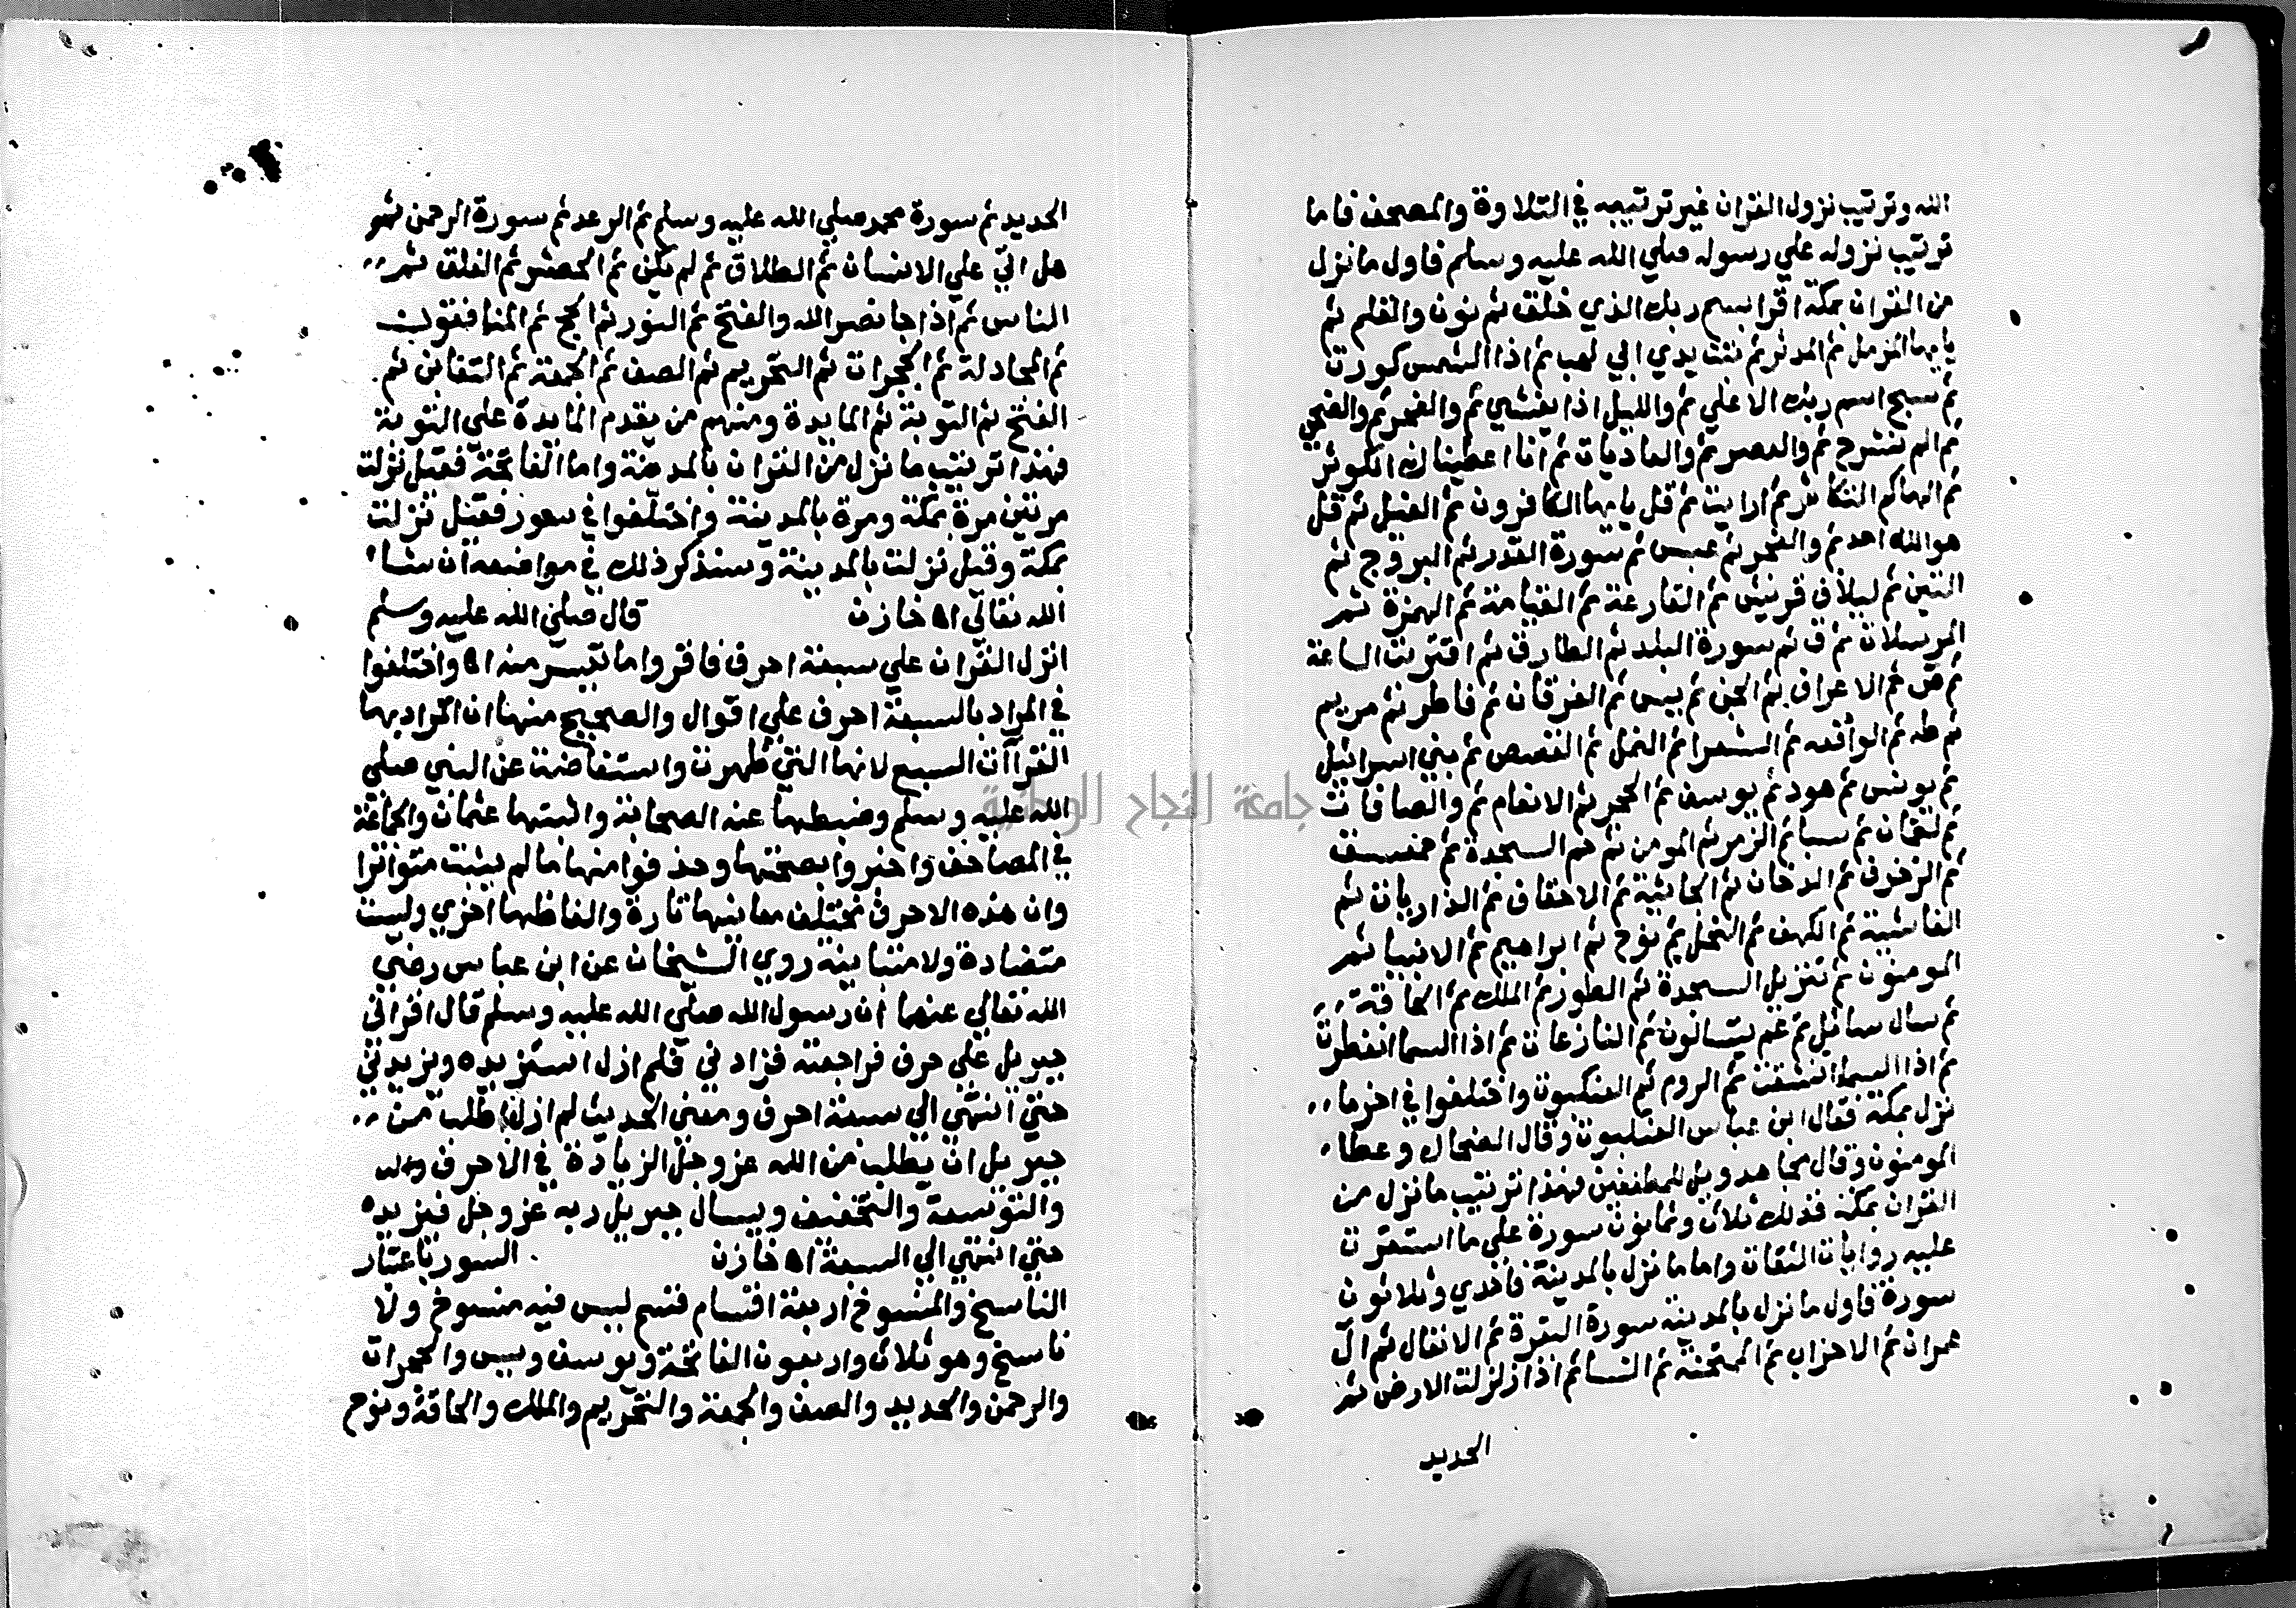 الله وترتيب نزول القران غير ترتيبه في التلاوة والمصحف فاما
ترتيب نزوله علي رسوله صلي الله عليه وسلم فاول ما نزل
من القران بمكة اقرا بسم ربك الذي خلق ثم نون والقلم ثم
يايها المزمل ثم المدثر ثم تبت يدي ابي لهب ثم اذا الشمس كورت
ثم سبح اسم ربك الاعلي ثم والليل اذا يغشي ثم والفجر ثم والضحي
ثم الم نشرح ثم والعصر ثم والعاديات ثم انا اعطيناك الكوثر
ثم الهاكم التكاثر ثم ارايت ثم قل يايها الكافرون ثم الفيل ثم قل
هو الله احد ثم والنجم ثم عبس ثم سورة القدر ثم البروج ثم
التين ثم ليلاف قريش ثم القارعة ثم القيامة ثم الهمزة ثم
المرسلات ثم ق ثم سورة البلد ثم الطارق ثم اقتربت الساعة
ثم ص ثم الاعراف ثم الجن ثم يس ثم الفرقان ثم فاطر ثم مريم
ثم طه ثم الواقعه ثم الشعرا ثم النمل ثم القصص ثم بني اسرائيل
ثم يونس ثم هود ثم يوسف ثم الحجر ثم الانعام ثم والصافات
ثم لقمان ثم سبا ثم الزمر ثم المومن ثم حم السجدة ثم حمعسق
ثم الزخرف ثم الدخان ثم الجاثية ثم الاحقاف ثم الذاريات ثم
الغاشية ثم الكهف ثم النحل ثم نوح ثم ابراهيم ثم الانبيا ثم
المومنون ثم تنزيل السجدة ثم الطور ثم الملك ثم الحاقة
ثم سال سائل ثم عم يتسالون ثم النازعات ثم اذا السما انفطرت
ثم اذا السما انشقت ثم الروم ثم العنكبوت واختلفوا في اخر ما
نزل بمكة فقال ابن عباس العنكبوت وقال الضحاك وعطاء
المومنون وقال مجاهد ويل للمطففين فهذا ترتيب ما نزل من
القران بمكة فذلك ثلاث وثمانون سورة علي ما استقرت
عليه روايات الثقات واما ما نزل بالمدينة فاحدي وثلاثون
سورة فاول ما نزل بالمدينة سورة البقرة ثم الانفال ثم ال
عمران ثم الاحزاب ثم الممتحنة ثم النسا ثم اذا زلزلت الارض ثم
الحديد
الحديد ثم سورة محمد صلي الله عليه وسلم ثم الرعد ثم سورة الرحمن ثم
هل اتي علي الانسان ثم الطلاق ثم لم يكن ثم الحشر ثم الفلق ثم
الناس ثم اذا جا نصر الله والفتح ثم النور ثم الحج ثم المنافقون
ثم المجادلة ثم الحجرات ثم التحريم ثم الصف ثم الجمعة ثم التغابن ثم
الفتح ثم التوبة ثم المايدة ومنهم من يقدم المايدة علي التوبة
فهذا ترتيب ما نزل من القران بالمدينة واما الفاتحة فقيل نزلت
مرتين مرة بمكة ومرة بالمدينة واختلفوا في سور فقيل نزلت
بمكة وقيل نزلت بالمدينة وسنذكر ذلك في مواضعه ان شاء
الله تعالي اه خازن قال صلي الله عليه وسلم
انزل القران علي سبعة احرف فاقروا ما تيسر منه اه واختلفوا
في المراد بالسبعة احرف علي اقوال والصحيح منها ان المراد بها
القراآت السبع لانها التي ظهرت واستفاضت عن النبي صلي
الله عليه وسلم وضبطها عنه الصحابة واثبتها عثمان والجماعة
في المصاحف واخبروا بصحتها وحذفوا منها ما لم يثبت متواترا
وان هذه الاحرف تختلف معانيها تارة والفاظها اخري وليست
متضادة ولا متباينة روي الشيخان عن ابن عباس رضي
الله تعالي عنهما ان رسول الله صلي الله عليه وسلم قال اقراني
جبريل علي حرف فراجعته فزادني فلم ازل استزيده ويزيدني
حتي انتهي الي سبعة احرف ومعني الحديث لم ازل اطلب من
جبريل ان يطلب من الله عز وجل الزيادة في الاحرف
والتوسعة والتخفيف ويسال جبريل ربه عز وجل فيزيده
حتي انتهي الي السبعة اه خازن السور باعتبار
الناسخ والمنسوخ اربعة اقسام قسم ليس فيه منسوخ ولا
ناسخ وهو ثلاث واربعون الفاتحة ويوسف ويس والحجرات
والرحمن والحديد والصف والجمعة والتحريم والملك والحاقة ونوح
جامعة النجاح الوطنية